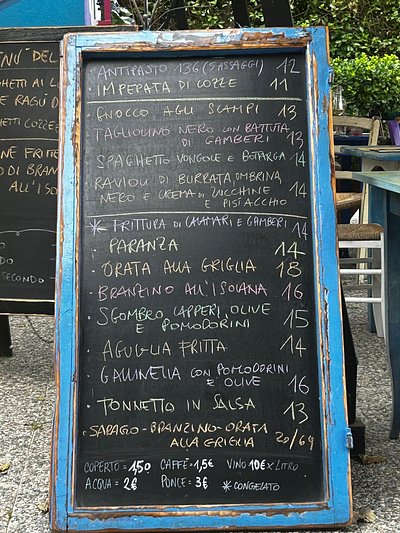 ANTIPASTO 13G (5 ASSAGGI) 12
IMPEPATA DI COZZE 11
GNOCCO AGLI SCAMPI 13
TAGLIOLINO NERO CON BATTUTA
DI GAMBERI 13
SPAGHETTO VONGOLE E BOTARGA 14
RAVIOLI DI BURRATA, OMBRINA
NERO E CREMA DI ZUCCHINE
E PISTACCHIO 14
* FRITTURA DI CALAMARI E GAMBERI 14
PARANZA 14
ORATA ALLA GRIGLIA 18
BRANZINO ALL'ISOLANA 16
SGOMBRO, CAPPERI, OLIVE
E POMODORINI 15
AGUGLIA FRITTA 14
GALLINELLA CON POMODORINI
E OLIVE 16
TONNETTO IN SALSA 13
SARAGO-BRANZINO-ORATA
ALLA GRIGLIA
COPERTO=1,50 CAFFÉ=1,5€ VINO 10€ X LITRO
ACQUA=2€ PONCE=3€ *CONGELATO
DEL
SECONDO